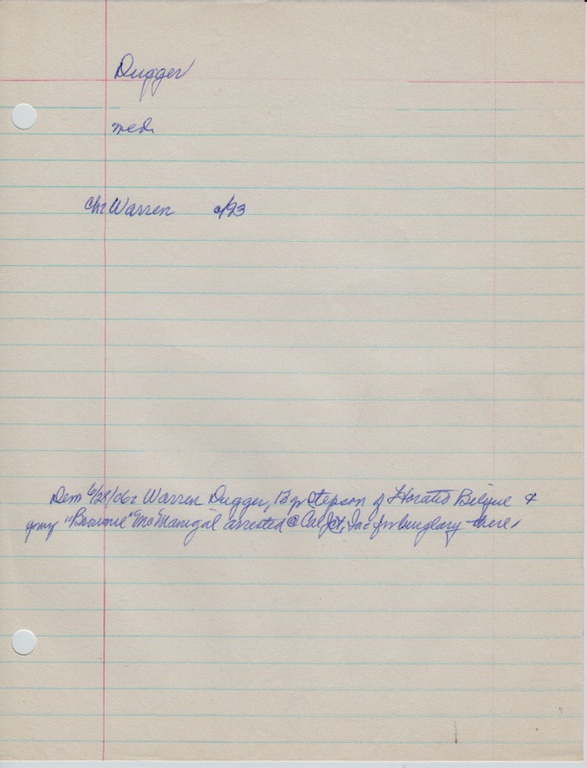 Dugger
med.
Ch: Warren c/93
Dem 6/28/06: Warren Dugger, 13 yr stepson of Horatio Bilyue &
young "Brownie" McManigal arrested @ Cal Jct, Ia for burglary there.